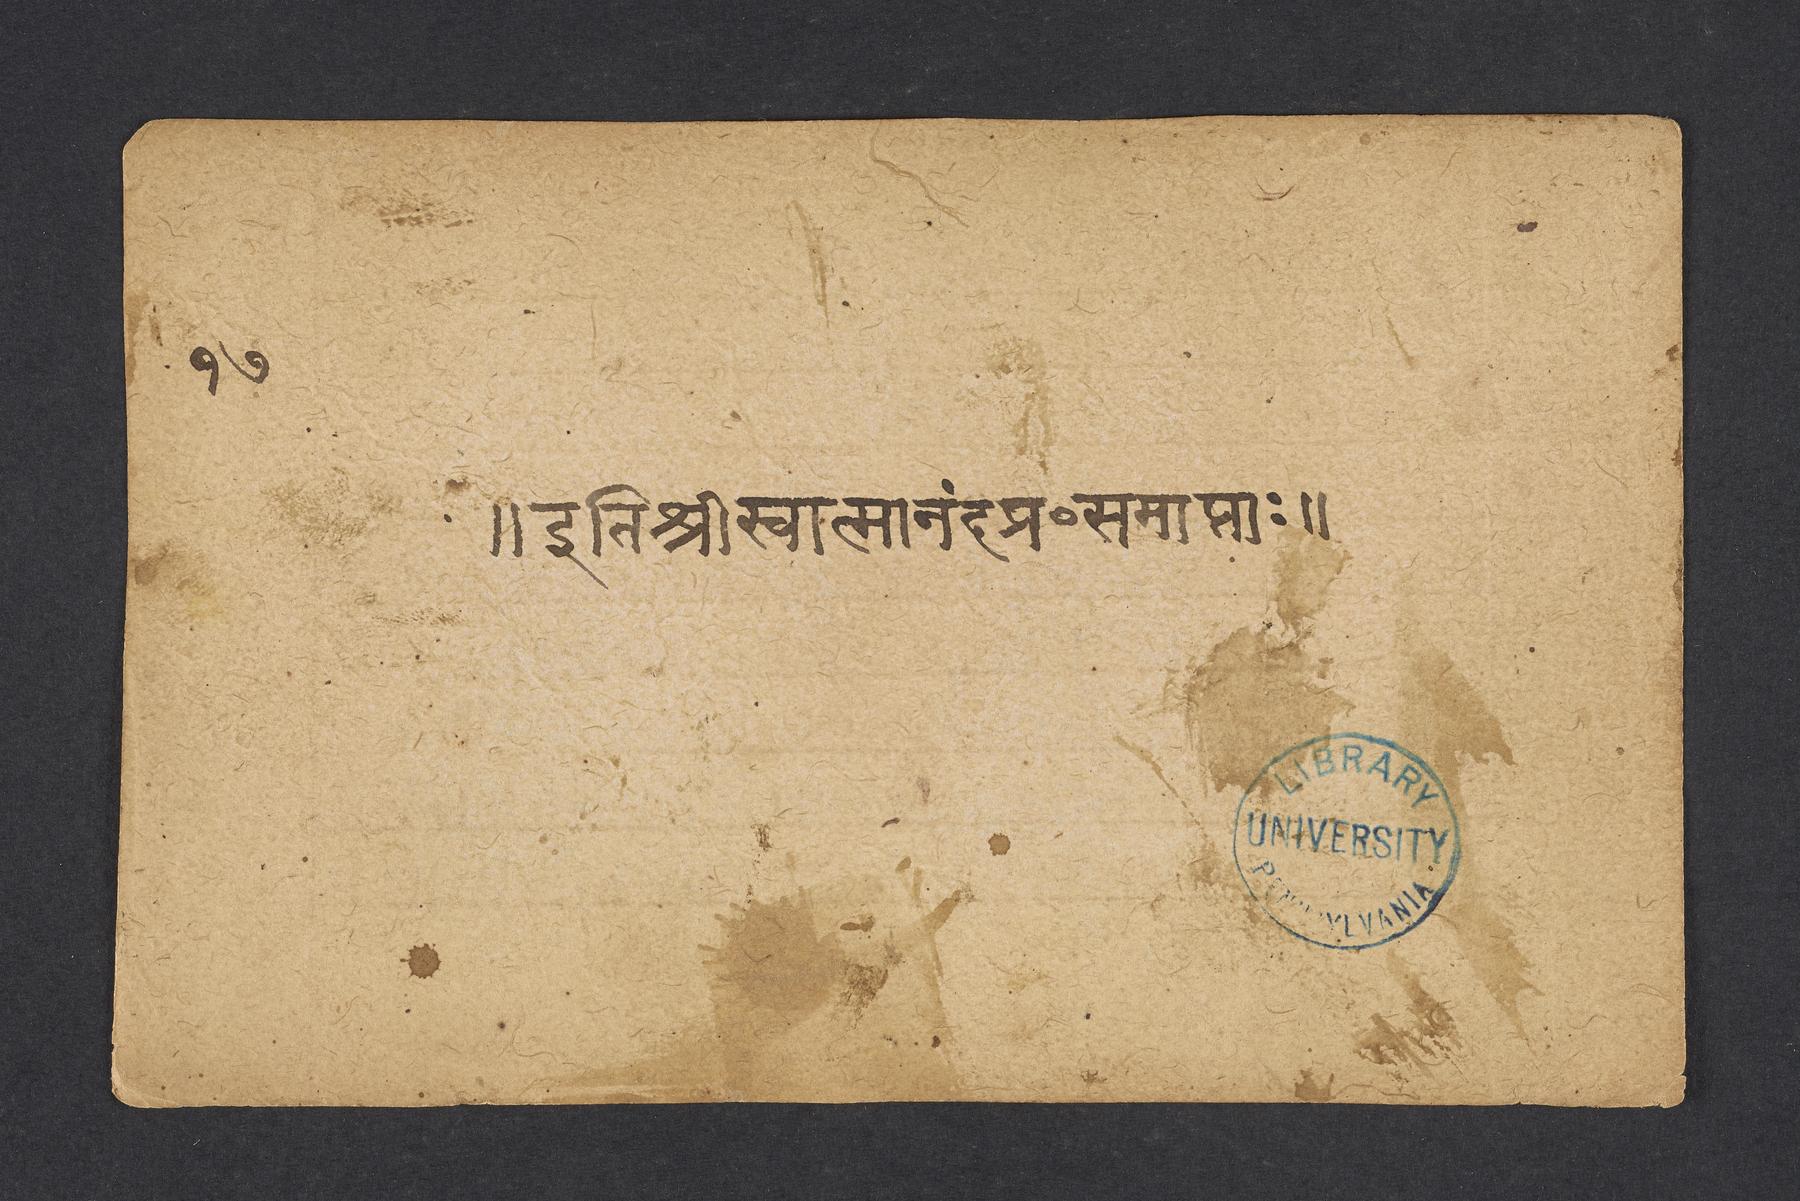 १७
॥इतिश्रीस्वात्मानंदप्र०समाप्ताः॥
LIBRARY
UNIVERSITY
PENNSYLVANIA